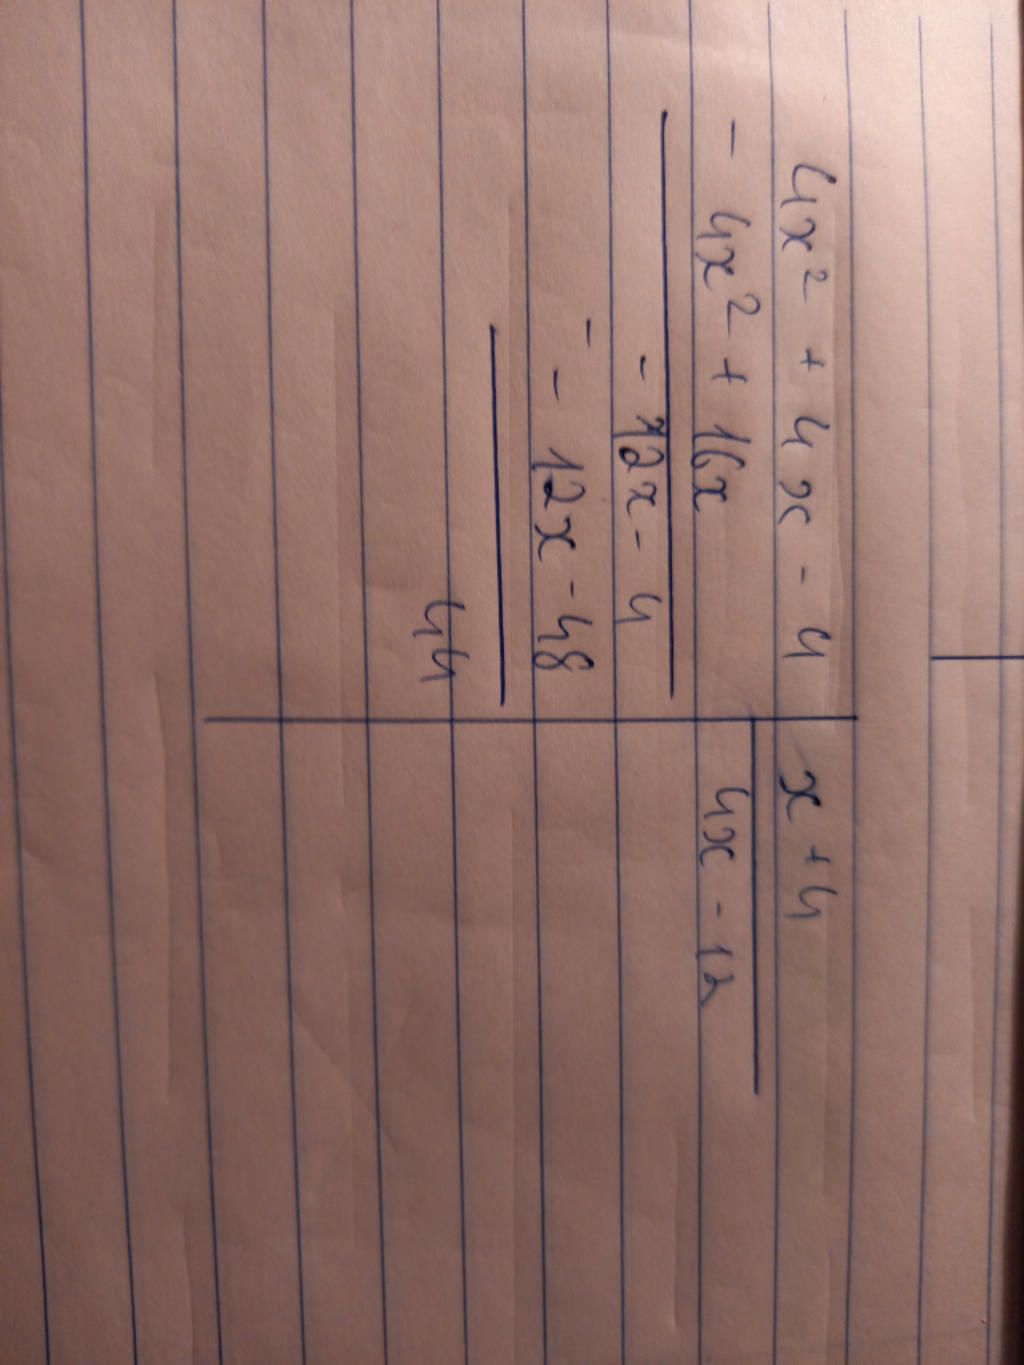 4x² + 4x - 4 | x + 4
- 4x² + 16x | 4x - 12
- 12x - 4
- - 12x - 48
44